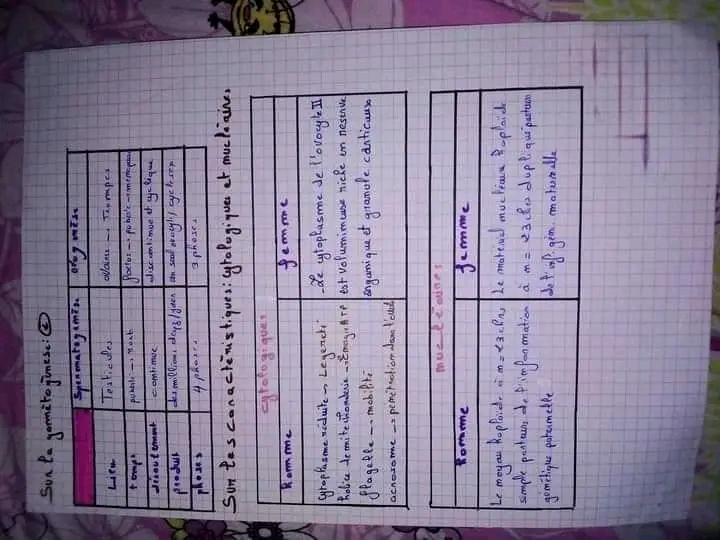 Sur la gamétogénèse: 2
Spermatogénèse. Ovogénèse.
lieu Testicules ovaires → Trompes
temps puberté → mort foetus → puberté → menopause
déroulement continue discontinue et cyclique
produit des millions de spz/jour un seul ovocyte/cycle sex
phases 4 phases 3 phases
Sur les caractéristiques: cytologiques et nucléaires
cytologiques
Homme femme
cytoplasme réduite → Legereté
hélice de mitochondrie → Energie ATP
flagelle → mobilité
acrosome → pénétration dans l'
- Le cytoplasme de l'ovocyte II
est volumineuse riche en reserve
et granule corticaux
nucléaires
Homme femme
Le noyau haploïde à n=23 chrs
simple porteurs de l'information
génétique paternelle
Le matériel nucléaire haploïde
à n = 23 chrs dupliqué porteur
de l'infgén maternelle